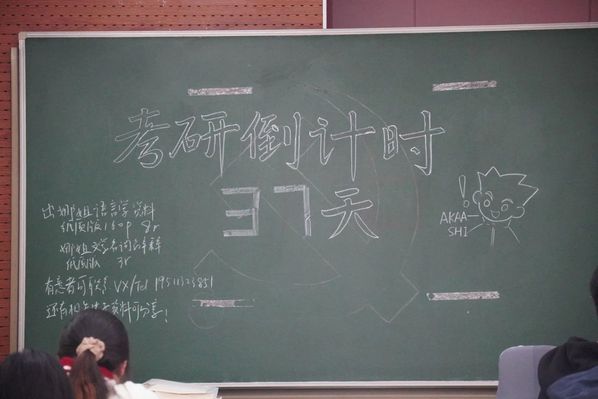 考研倒计时
37天
出娜姐语言学资料
纸质版160p 8r
娜姐文学名词解释
纸质版 3r
有意者可联系 VX/Tel
还有相关电子资料可分享!
!
AKAA
SHI